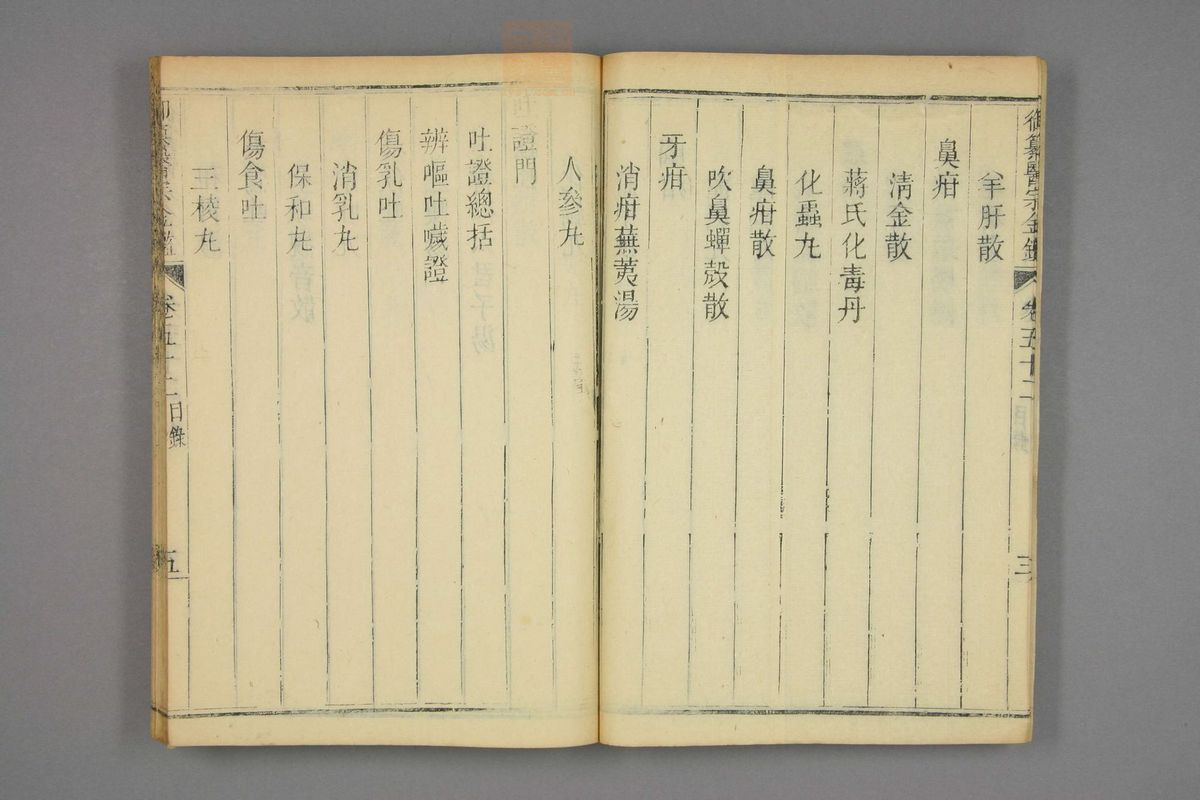 御纂醫宗金鑑 卷五十二 三
羊肝散
鼻疳
清金散
蔣氏化毒丹
化蟲丸
鼻疳散
吹鼻蟬殻散
牙疳
消疳蕪荑湯
人參丸
吐證門
吐證總括
辨嘔吐噦證
傷乳吐
消乳丸
保和丸
傷食吐
三棱丸
御纂醫宗金鑑 卷五十二目錄 五